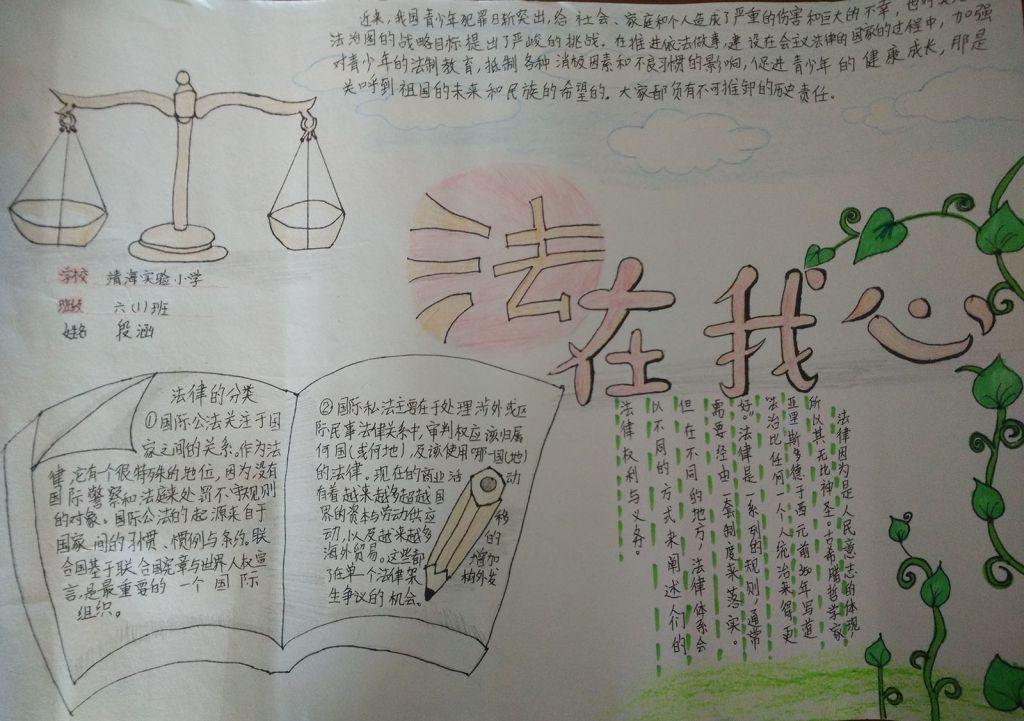 近来,我国青少年犯罪日渐突出,给社会、家庭和个人造成了严重的伤害和巨大的不幸,也对
法治国的战略目标提出了严峻的挑战。在推进依法做事,建设在会主义法律的国家的过程中,加强
对青少年的法制教育,抵制各种消极因素和不良习惯的影响,促进青少年的健康成长,那是
关呼到祖国的未来和民族的希望的。大家都负有不可推卸的历史责任。
学校 清海实验小学
班级 六(1)班
姓名 段涵
法在我心
法律的分类
①国际公法关注于国
家之间的关系。作为法
律,它有个很特殊的地位,因为没有
国际警察和法庭来处罚不守规则
的对象。国际公法的起源来自于
国家间的习惯、惯例与条约,联
合国基于联合国宪章与世界人权宣
言,是最重要的一个国际
组织。
②国际私法主要在于处理涉外或区
际民事法律关系中,审判权应该归属
何国(或何地),及该使用哪一国(地)
的法律。现在的商业活动
有着越来越多超越国
界的资本与劳动供应移
动,以及越来越多的
海外贸易。这些都增加
了在单一个法律架构外发
生争议的机会。
法律因为是人民意志的体现
所以其无比神圣。古希腊哲学家
亚里斯多德于西元前350年写道
法治比任何一个人统治来得更
好。"法律是一系列的规则,通常
需要经由一套制度来落实。
但在不同的地方,法律体系会
以不同的方式来阐述人们的
法律权利与义务。